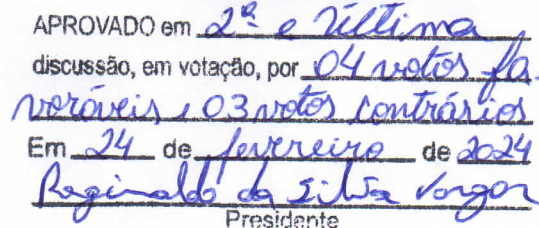 APROVADO em 2ª e última
discussão, em votação, por 04 votos fa-
voráveis e 03 votos contrários
Em 24 de fevereiro de 2024
Reginaldo da Silva
Presidente